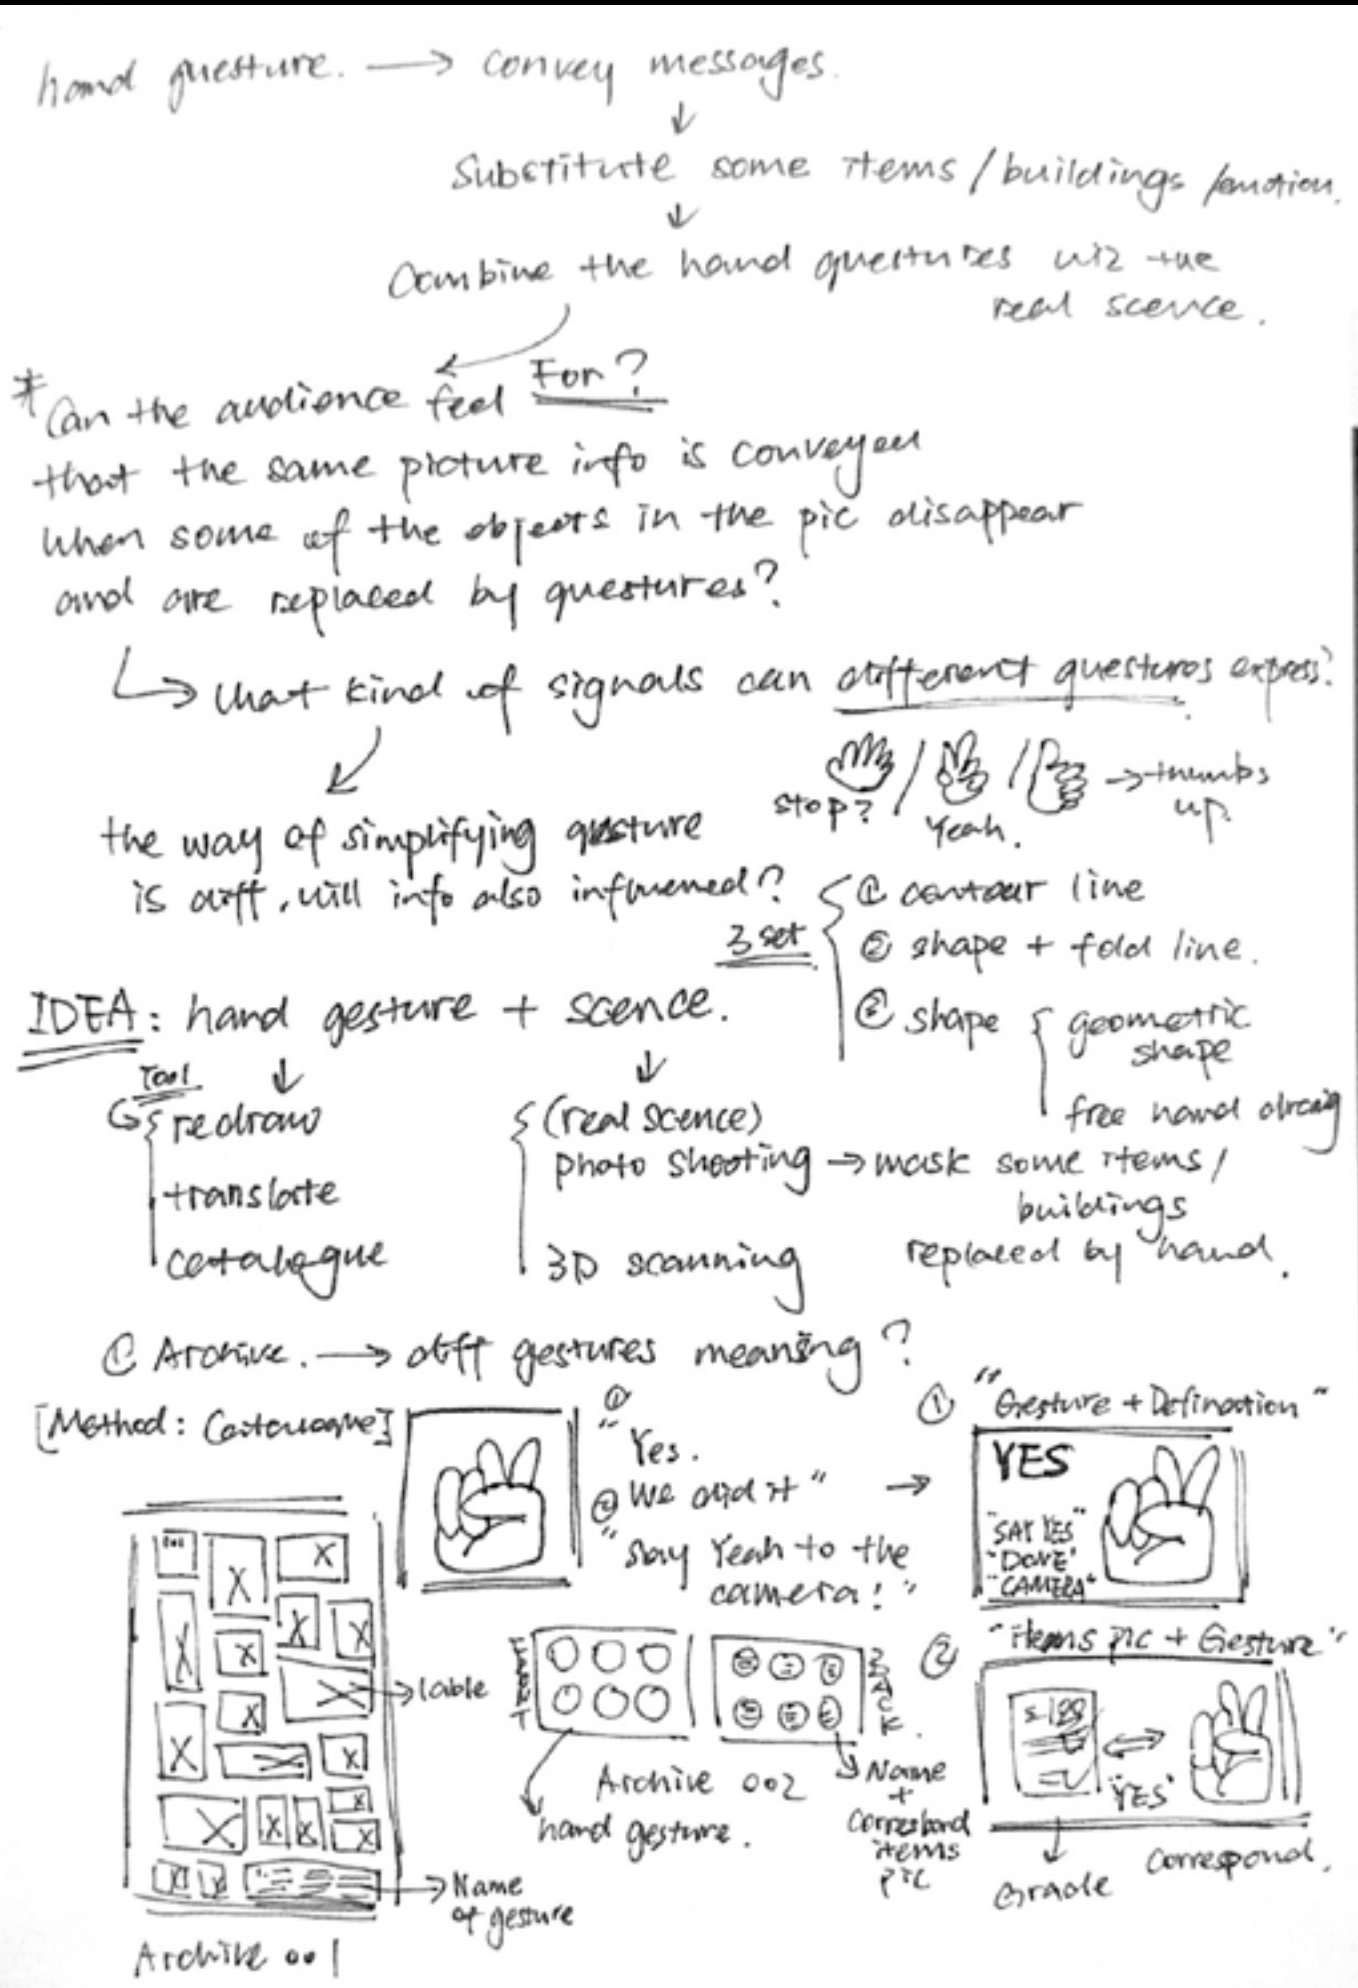 hand guesture. → convey messages.
↓
Substitute some items / buildings / emotion.
↓
Combine the hand guestures wiz the
real scence.
* Can the audience feel For?
that the same picture info is conveyed
when some of the objects in the pic disappear
and are replaced by guestures?
↳ what kind of signals can different guestures express?
stop? / Yeah. / → thumbs
up.
the way of simplifying guesture
is diff, will info also influened?
3 set
① contour line
② shape + fold line.
③ shape { geometric
shape
free hand
IDEA: hand gesture + scence.
Tool
redraw
translate
catalogue
(real scence)
photo shooting → mask some items /
buildings
replaced by hand.
3D scanning
① Archive. → diff gestures meaning?
[Method: Catalogue]
①
" Yes.
② We did it "
" Say Yeah to the
camera! "
→
① "Gesture + Defination"
YES
"SAY YES"
"DONE"
"CAMERA"
lable
Name
of gesture
Archive 001
FRONT
BACK
Archive 002
hand gesture.
Name
+
Correspond
items
pic
② "items pic + Gesture"
"YES"
Grade
correspond.